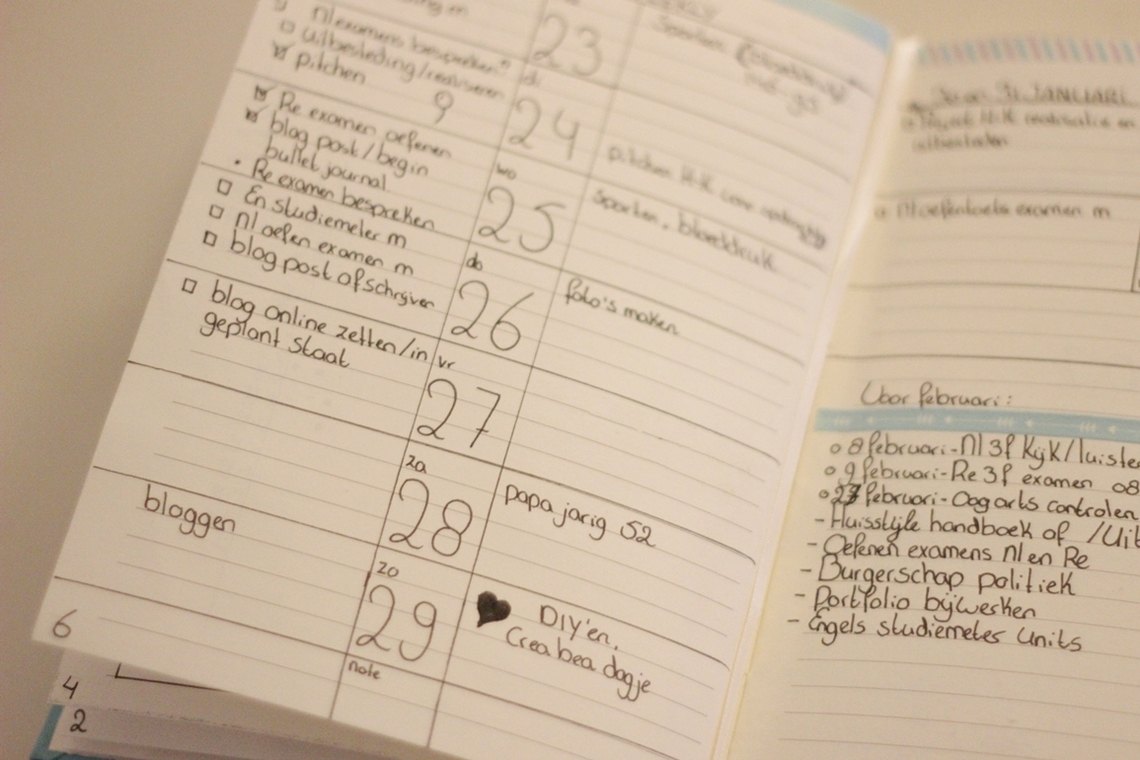 23
Nl examens bespreken
uitbesteding/realiseren
pitchen
di
24
9
pitchen
Re examen oefenen
blog post/begin
bullet journal
wo
25
sporten, bloeddruk
Re examen bespreken
En studiemeter m
Nl oefen examen m
blog post afschrijven
do
26
foto's maken
blog online zetten/in
geplant staat
vr
27
za
28
papa jarig 52
bloggen
zo
29
DIY'en,
Crea bea dagje
note
6
4
2
31 JANUARI
examen m
Voor februari:
8 februari-Nl 3f Kijk/luister
9 februari-Re 3f examen 08
27 februari-Oogarts controlen
- Huisstijle handboek of /Uit
- Oefenen examens Nl en Re
- Burgerschap politiek
- Portfolio bijwerken
- Engels studiemeter Units